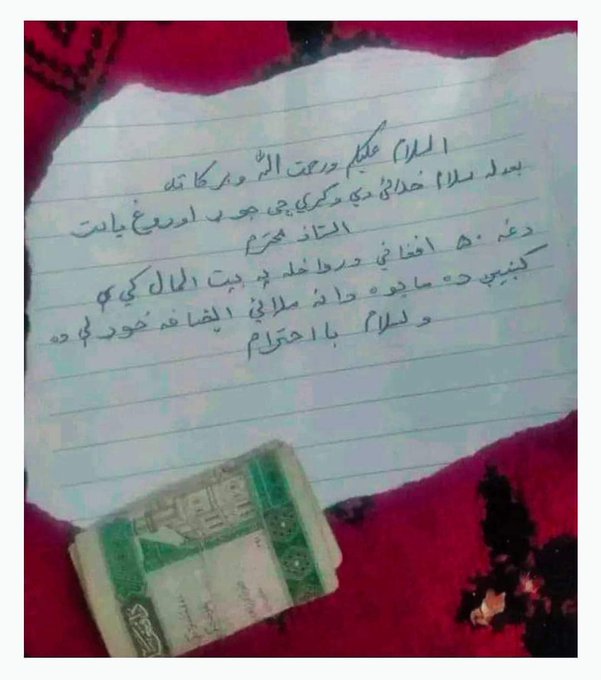 السلام علیکم ورحمت الله وبرکاته
بعد له سلام خدائ دی وکړی چی جوړ او روغ یاست
استاذ محترم
دغه ۵۰ افغانی درواخله په بیت المال کې ې
کښیږده ما یوه دانه ملائي اضافه خوړلې ده
ولسلام با احترام